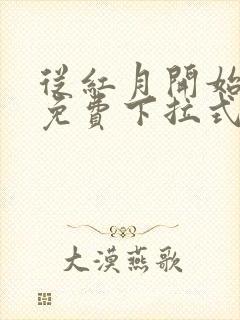 從紅月開始
免費下拉式
大漠燕歌